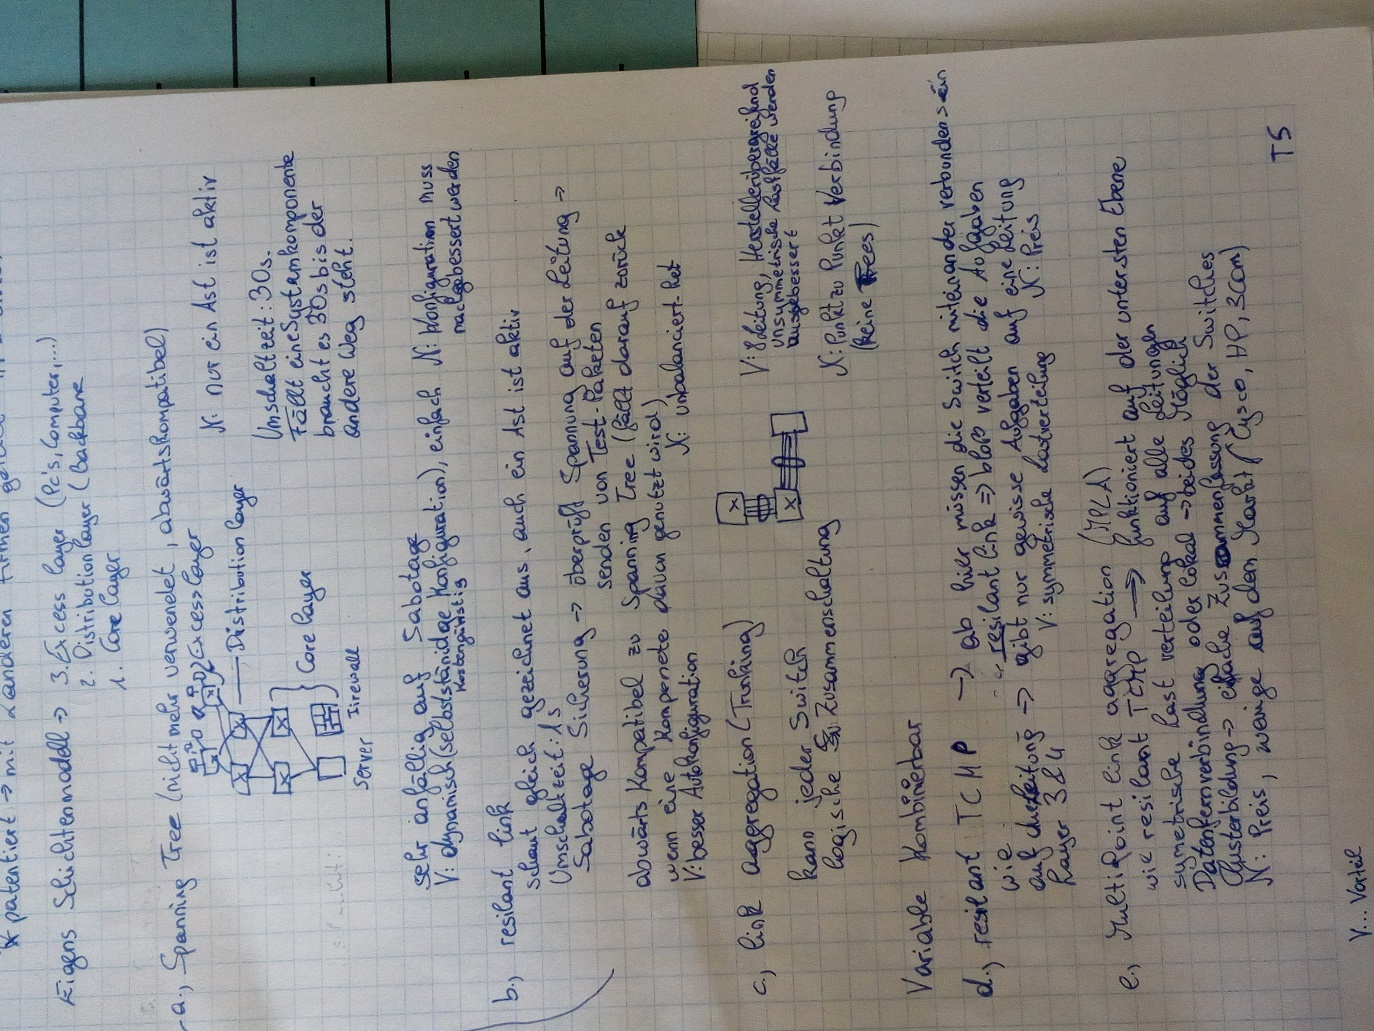 * patentiert → mit anderen Firmen
Eigens Schichtenmodell → 3. Excess layer (Pc's, Computer, ...)
2. Distribution layer (Backbone
1. Core layer
a., Spanning Tree (nicht mehr verwendet, abwärtskompatibel)
Excess layer
Distribution layer
Core layer
Server
Firewall
N: nur ein Ast ist aktiv
Umschaltzeit: 30s.
Fällt eine Systemkomponente
braucht es 30s bis der
andere Weg steht.
Sehr anfällig auf Sabotage
V: dynamisch (selbstständige Konfiguration), einfach
kostengünstig
N: Konfiguration muss
nachgebessert werden
b., resilant link
schaut gleich gezeichnet aus, auch ein Ast ist aktiv
Umschaltzeit: 1s
Sabotage Sicherung → überprüft Spannung auf der Leitung →
senden von Test-Paketen
abwärts kompatibel zu Spanning Tree (fällt darauf zurück
wenn eine Komponete davon genutzt wird)
V: besser Autokonfiguration
N: unbalanciert
c., link aggregation (Trunking)
kann jeder Switch
logische Zusammenschaltung
V: Leitung, Herstellerübergreifend
unsymetrische
ausgebessert
N: Punkt zu Punkt Verbindung
(keine Trees)
Variable Kombinierbar
d., resilant TCHP → ab hier müssen die Switch miteinander verbunden sein
wie resilant link → bloß verteilt die Aufgaben
auf → gibt nur gewisse Aufgaben auf eine Leitung
Layer 3 & 4
V: symmetrische Lastverteilung
N: Preis
e., Multi Point link aggregation (MPLA)
wie resilant TCHP → funktioniert auf der untersten Ebene
symetrische Last verteilung auf alle Leitungen
Datenfernverbindung oder Lokal → beides Möglich
Clusterbildung → einfache Zusammenfassung der Switches
N: Preis, wenige auf dem Markt (Cysco, HP, 3Com)
TS
V... Vorteil